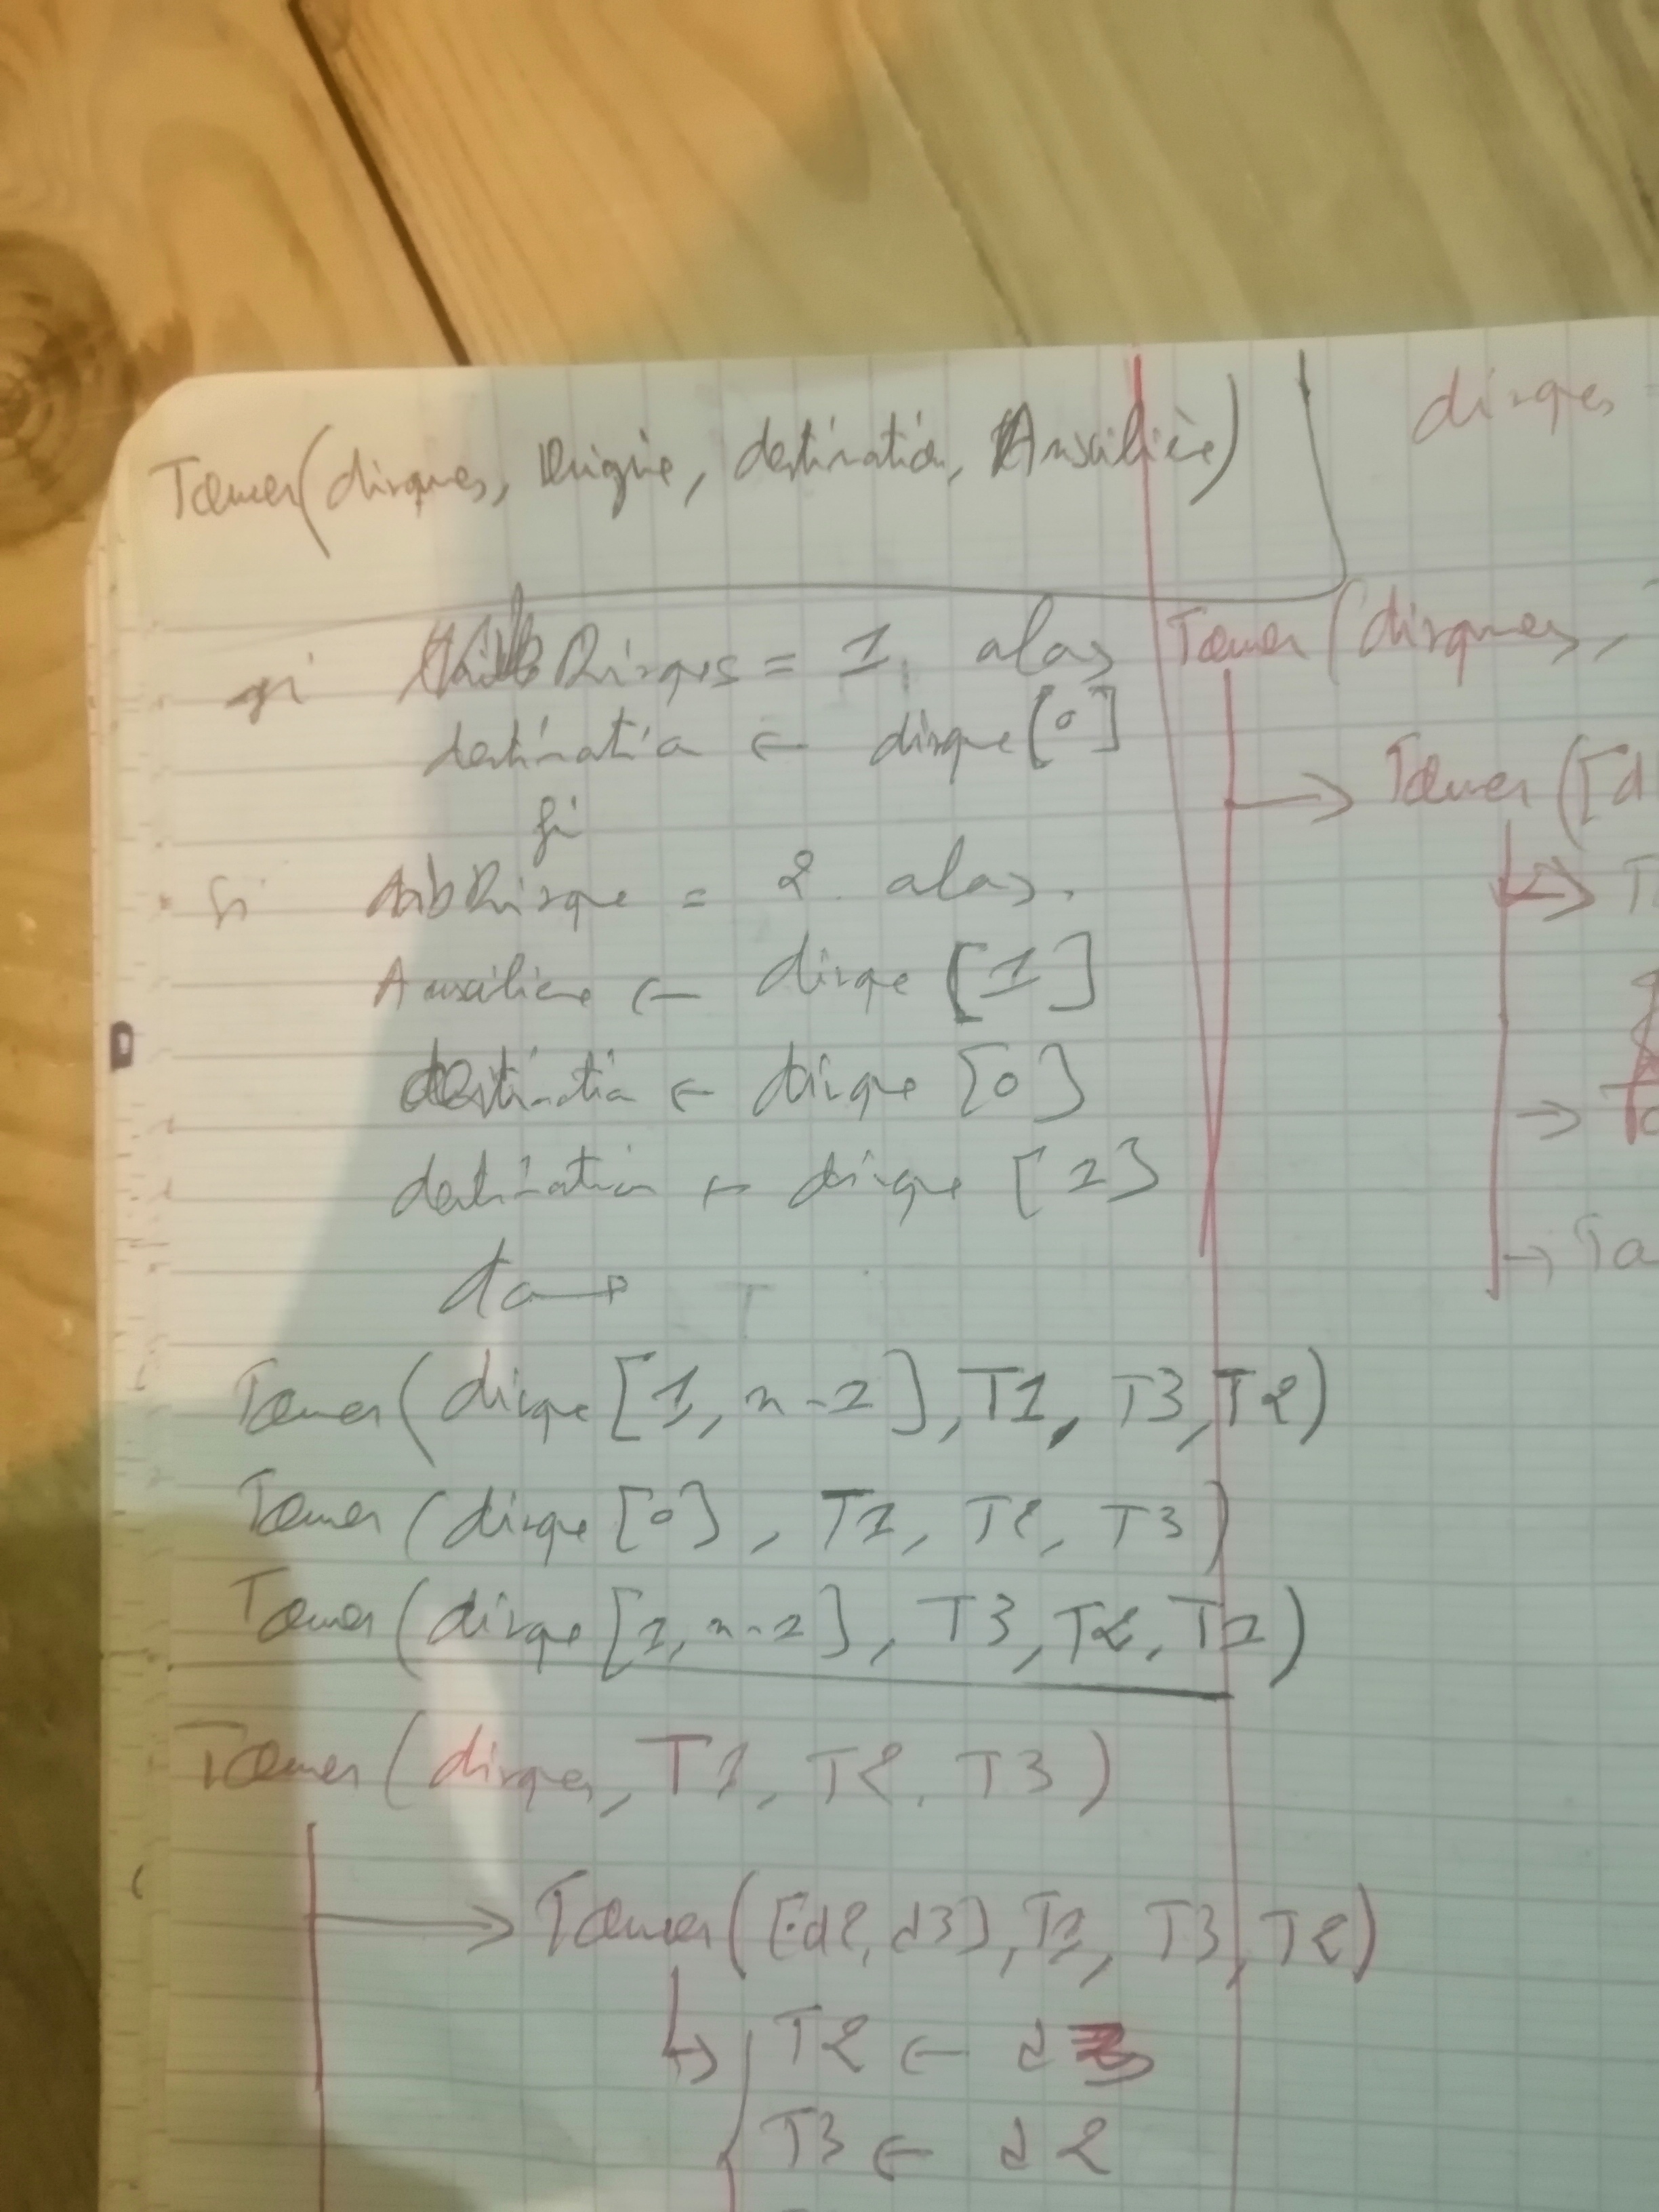 Tower(disques, Origine, destination, Auxilière)
si nbDisques = 1, alors
destination ← disque[0]
fi
Si nbDisque = 2 alors.
Auxiliere ← disque [1]
destination ← disque [0]
destination ← disque [1]
Tower(disque[1, n-1], T1, T3, T2)
Tower(disque[0], T1, T2, T3)
Tower(disque[1, n-1], T3, T2, T1)
Tower(disques, T1, T2, T3)
→ Tower([d2, d3], T1, T3, T2)
↳ T2 ← d3
T3 ← d2
disques
Tower(disques,
→ Tower([d
→ T
→ To
→ To